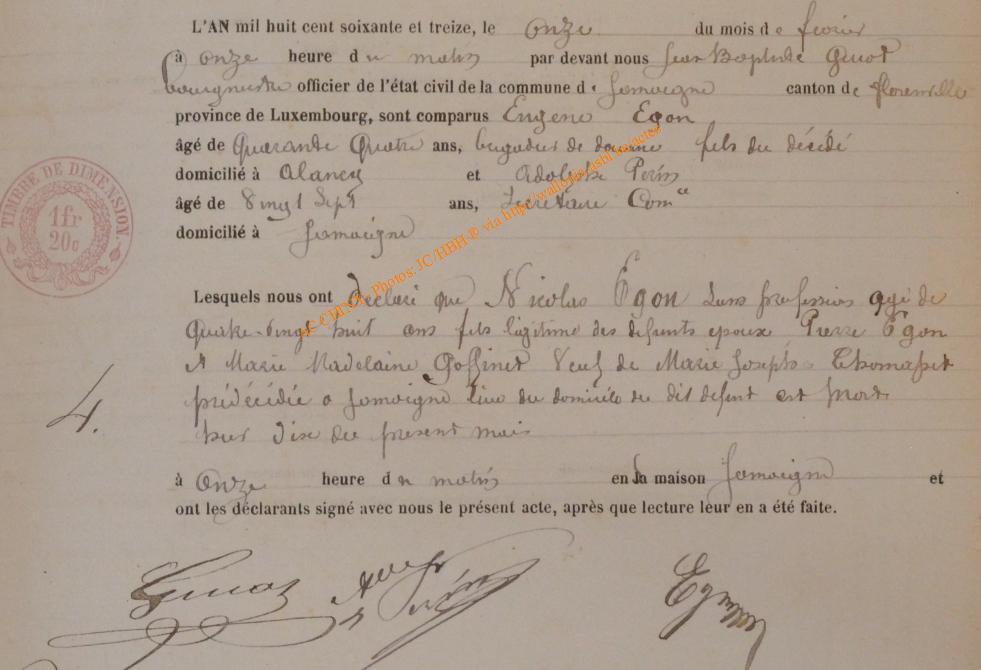 L'AN mil huit cent soixante et treize, le onze du mois de fevrier
à onze heure du matin par devant nous Jean Baptiste Guiot
bourgmestre officier de l'état civil de la commune de Jamoigne canton de florenville
province de Luxembourg, sont comparus Eugene Egon
âgé de Quarante Quatre ans, brigadier de douane fils du décédé
domicilié à et Adolphe
âgé de Vingt Sept ans, Secretaire Com^al
domicilié à Jamoigne
Lesquels nous ont declaré que Nicolas Egon sans profession agé de
Quatre-vingt huit ans fils légitime des defunts epoux Pierre Egon
et Marie Madelaine Goffinet Veuf de Marie Josephe
prédécédée a Jamoigne lieu du domicile du dit defunt est mort
hier dix du present mois
4.
à onze heure du matin en sa maison Jamoigne et
ont les déclarants signé avec nous le présent acte, après que lecture leur en a été faite.
Guiot Egon
TIMBRE DE DIMENSION
1fr
20c
Photos: JC/HBH © via http/wallonia.asbl